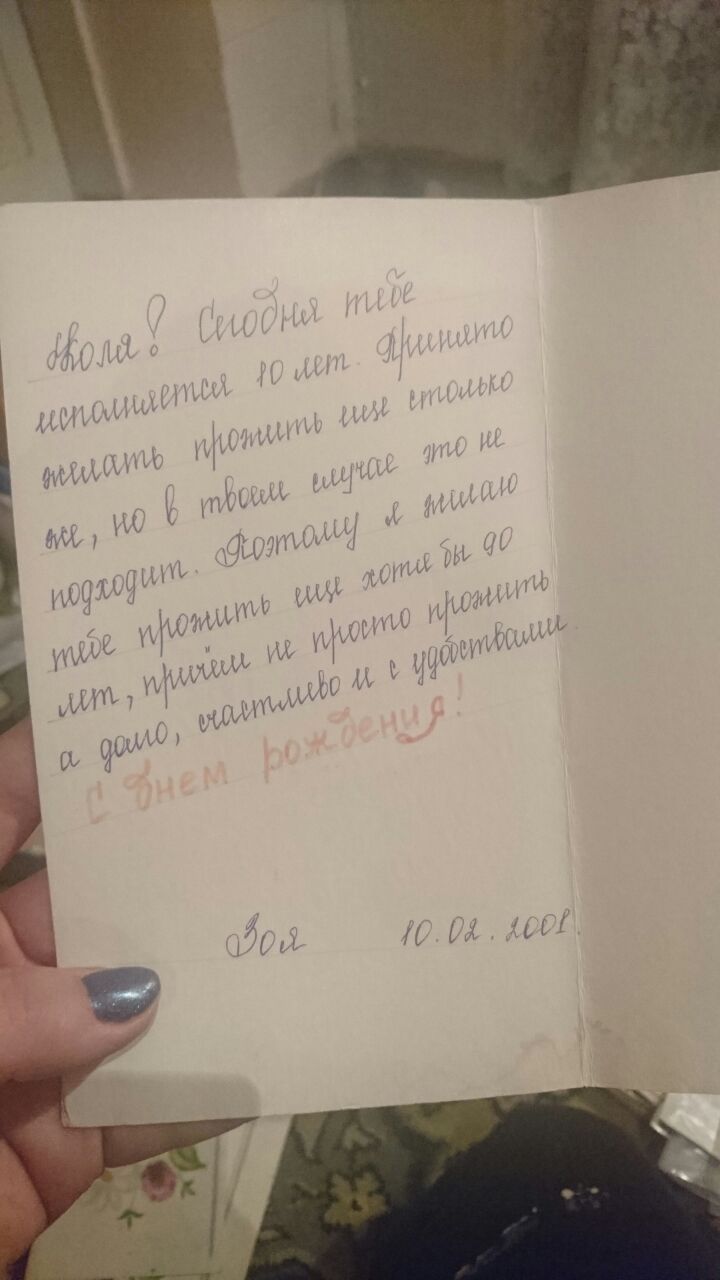 Коля! Сегодня тебе
исполняется 10 лет. Принято
желать прожить еще столько
же, но в твоем случае это не
подходит. Поэтому я желаю
тебе прожить еще хотя бы до
лет, причём не просто прожить
а домо, счастливо и с удобствами
С днем рождения!
Зоя 10.02.2001.